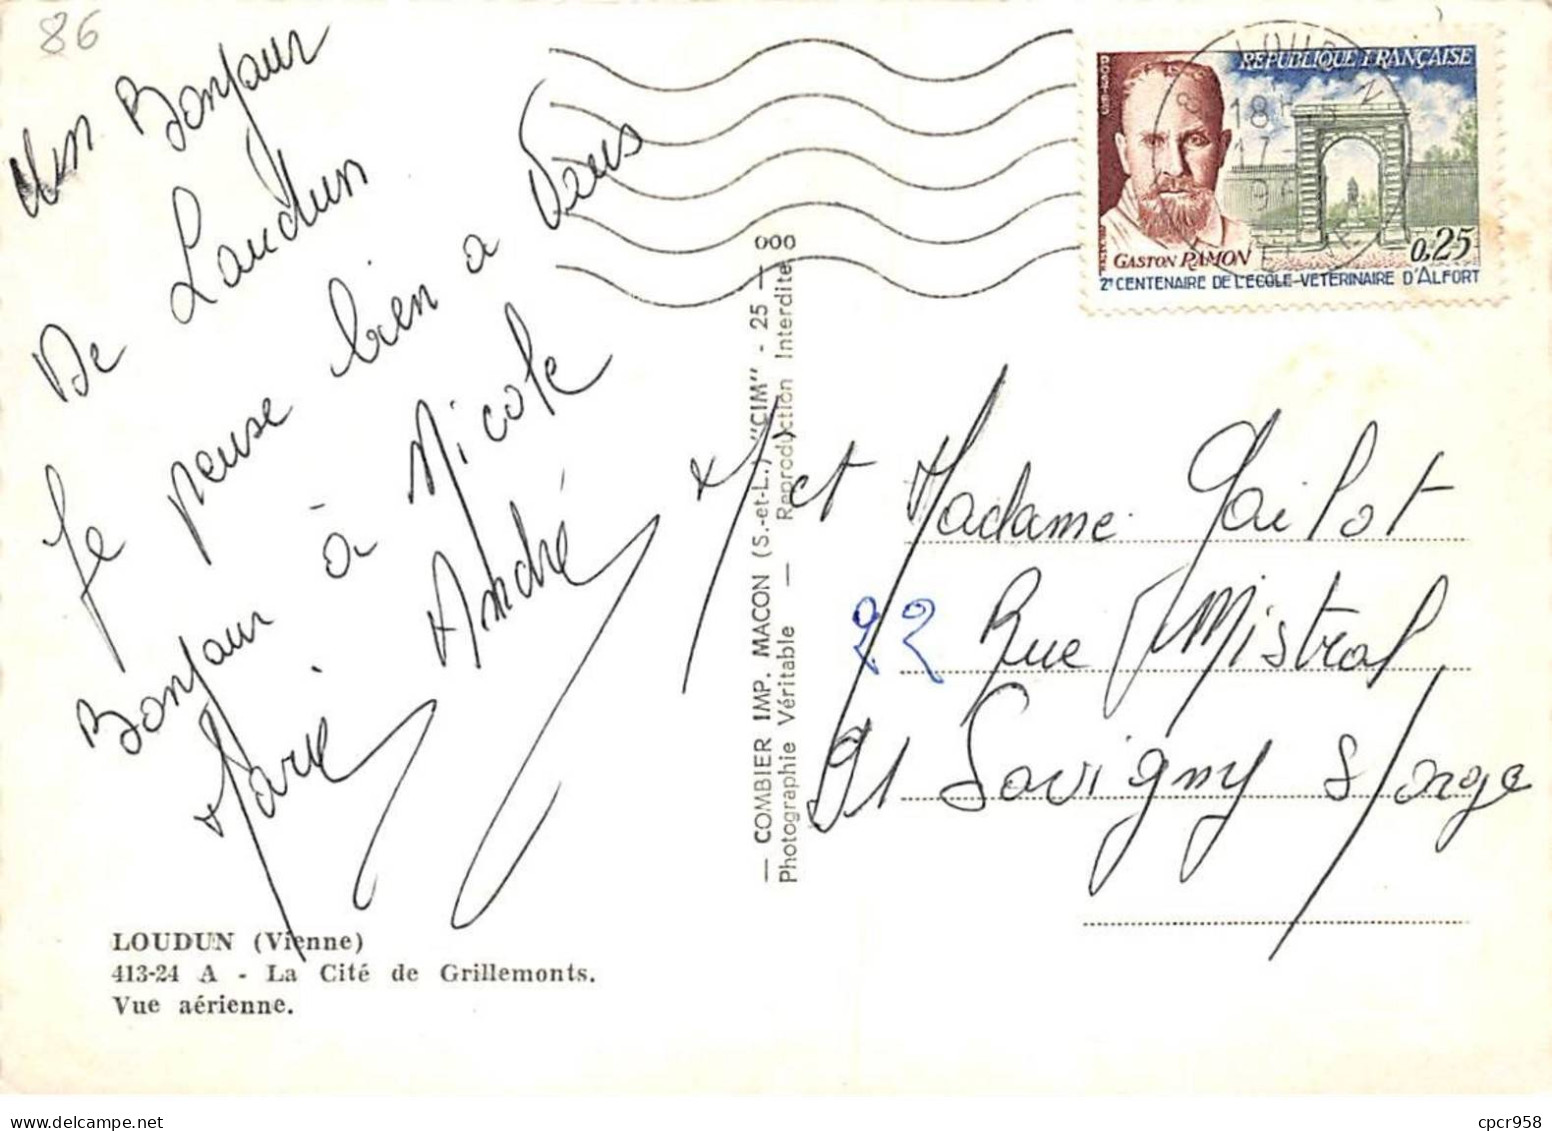 86
Un Bonjour
De Loudun
Je pense bien a Vous
Bonjour à Nicole
Marie André
RÉPUBLIQUE FRANÇAISE
GASTON RAMON
0,25
2e CENTENAIRE DE L'ECOLE-VETERINAIRE D'ALFORT
18H
17
— COMBIER IMP. MACON (S.-et-L.) "CIM" - 25 — 000
Photographie Véritable — Reproduction Interdite
M et Madame Gailot
22 Rue Mistral
91 Savigny s/orge
LOUDUN (Vienne)
413-24 A - La Cité de Grillemonts.
Vue aérienne.
cpcr958